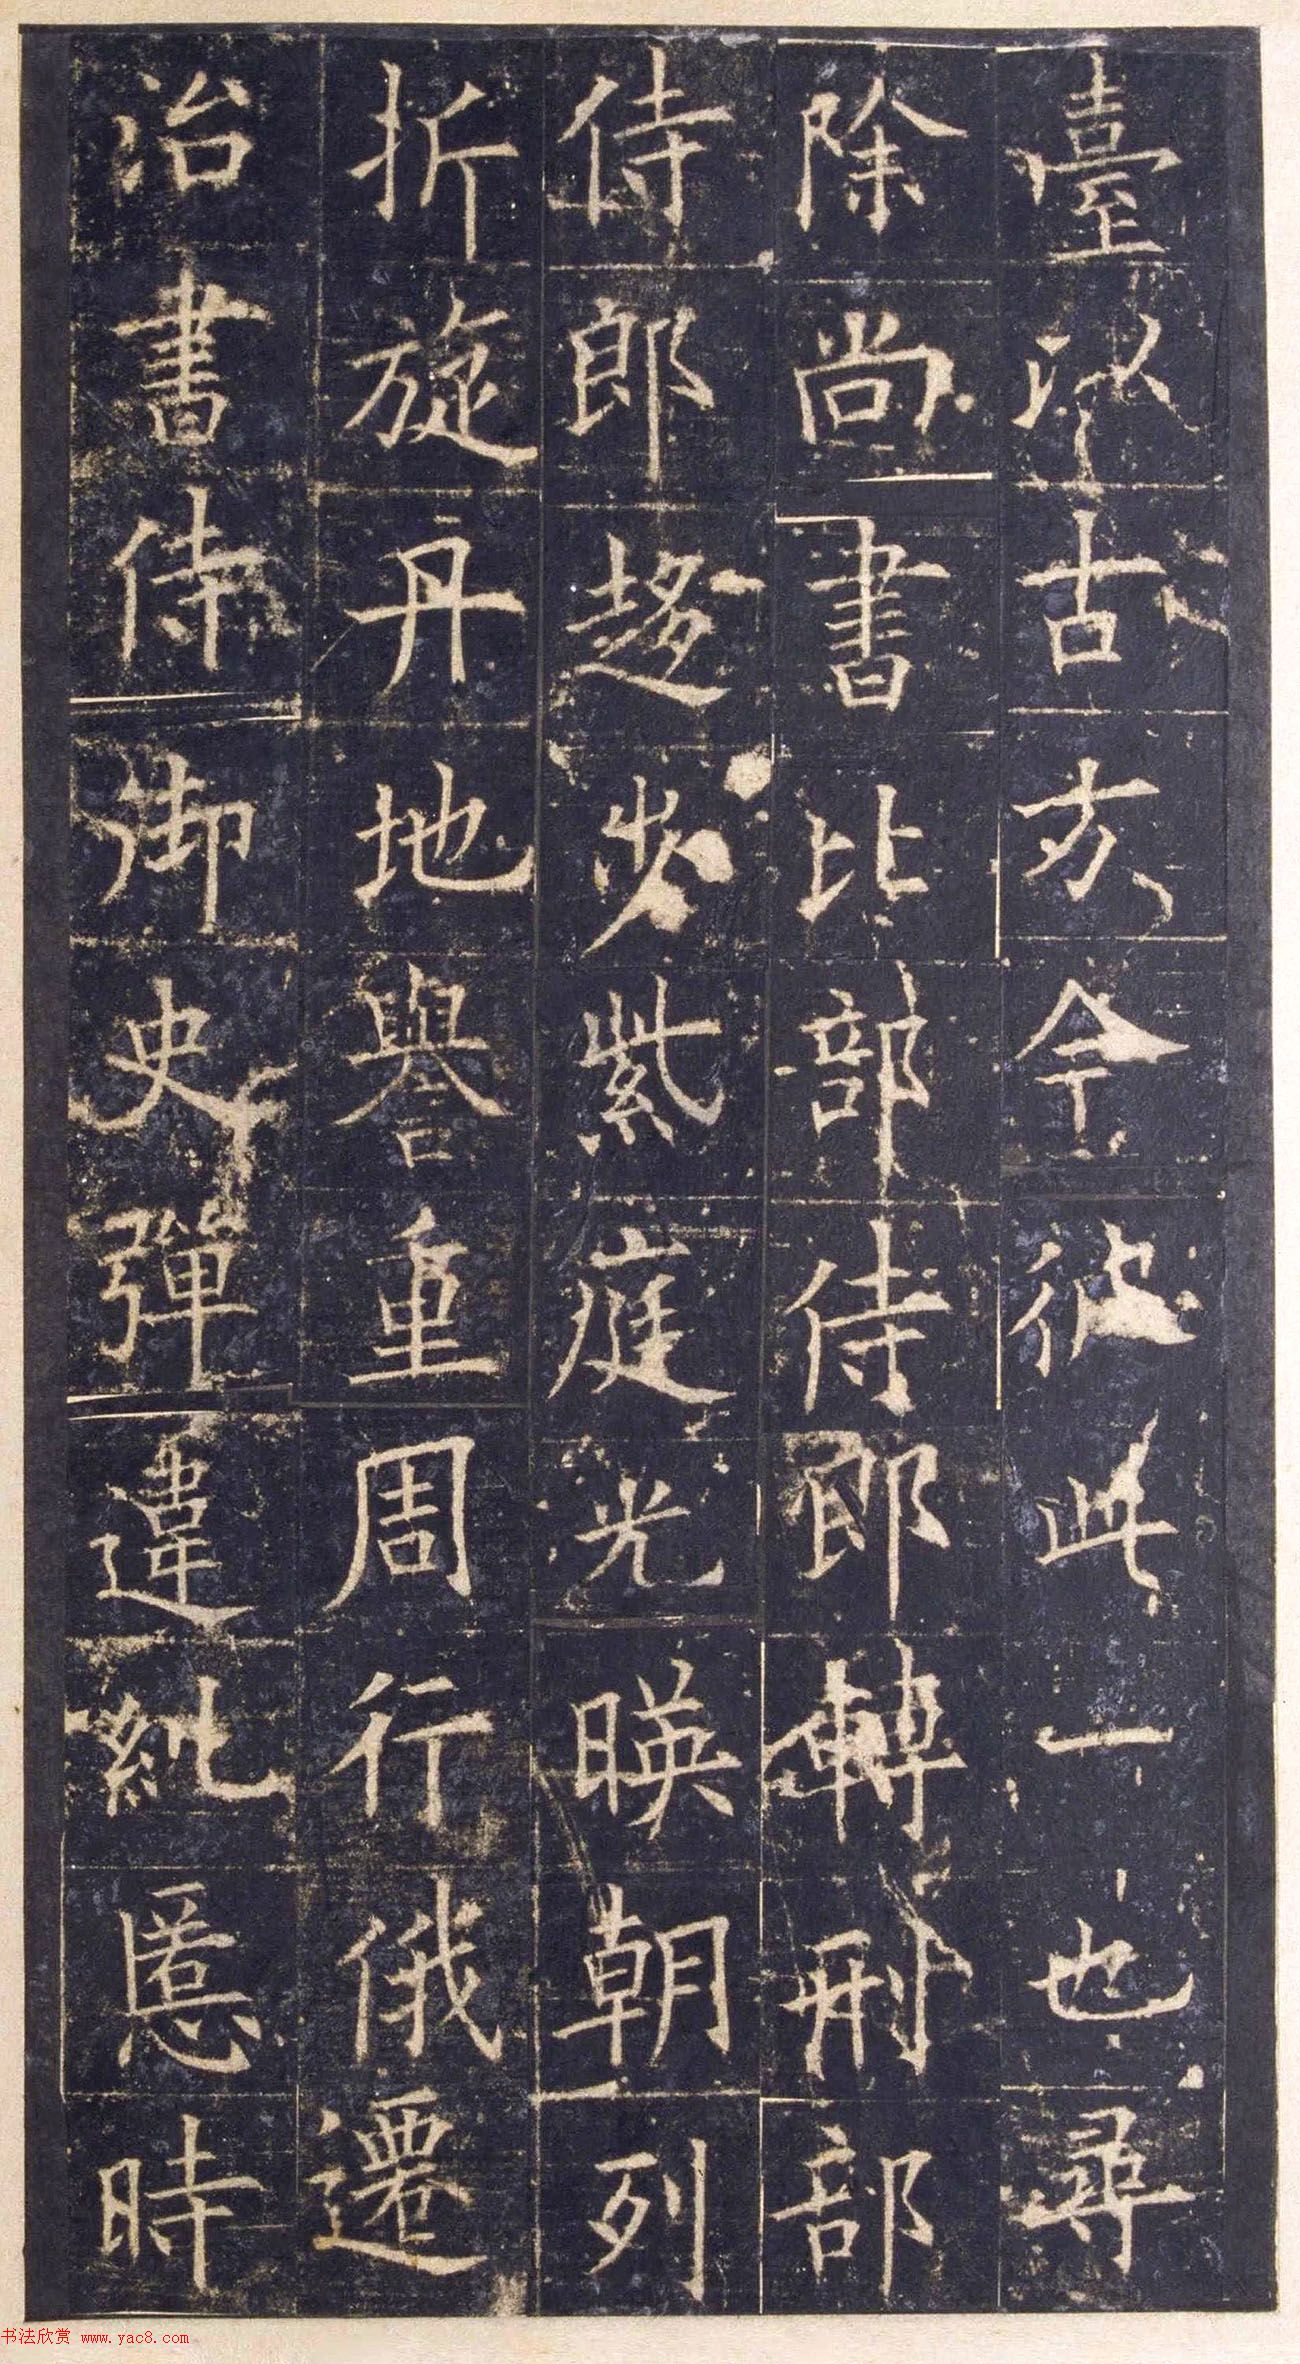 臺以古方今彼此一也尋
除尚書比部侍郎轉刑部
侍郎趍步紫庭光暎朝列
折旋丹地譽重周行俄遷
治書侍御史彈違糺慝時
书法欣赏 www.yac8.com